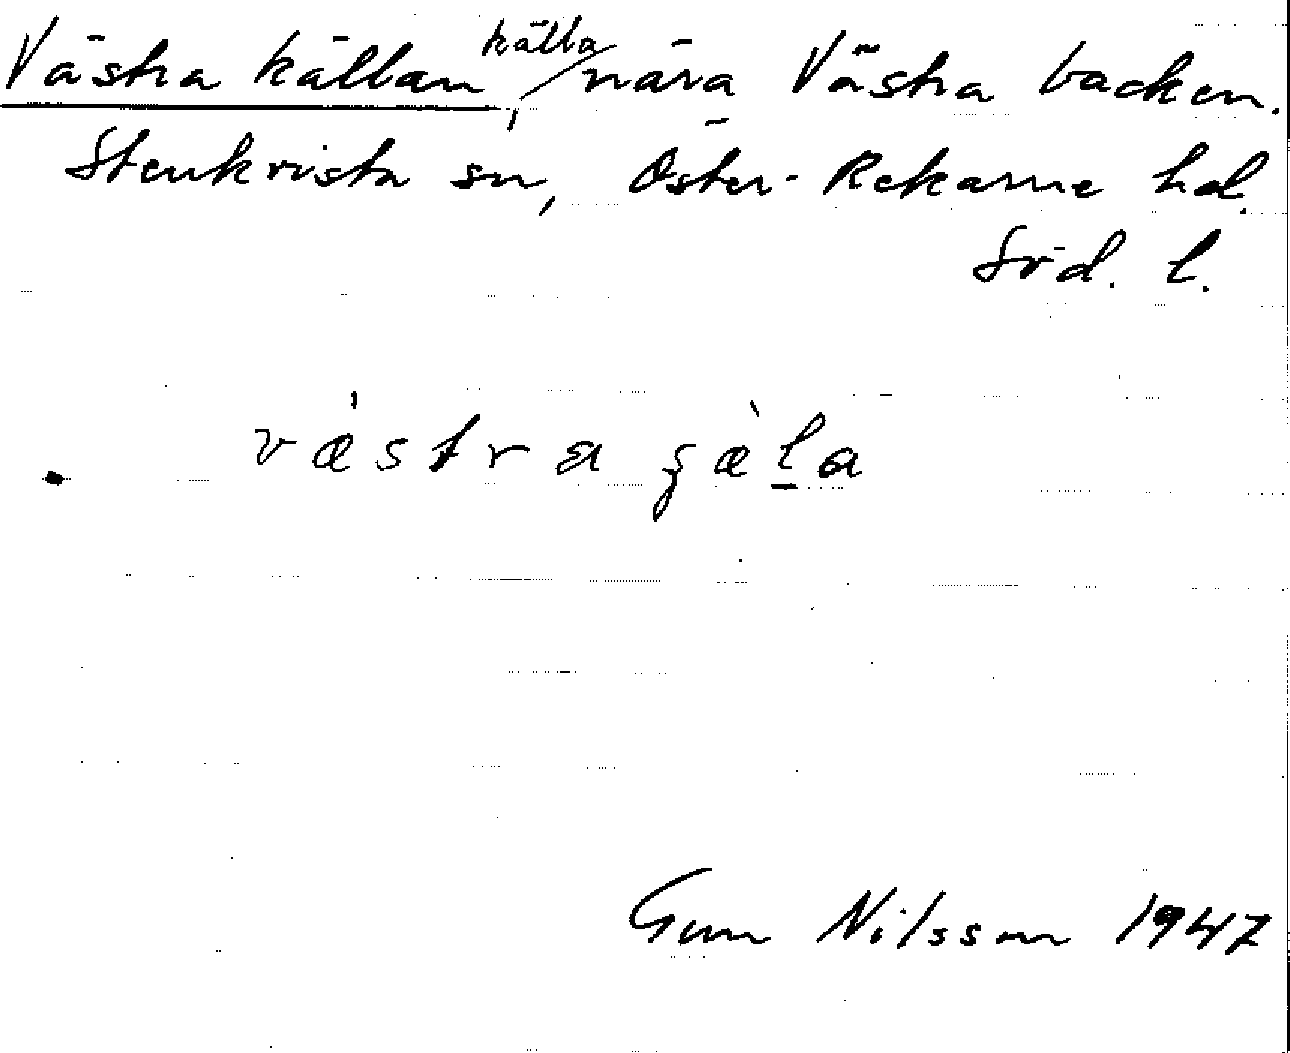 Västra källan, källa nära Västra backen.
Stenkvista sn, Öster-Rekarne hd.
Söd. l.
væ̍stra ʂæ̀l̲a
Gun Nilsson 1947